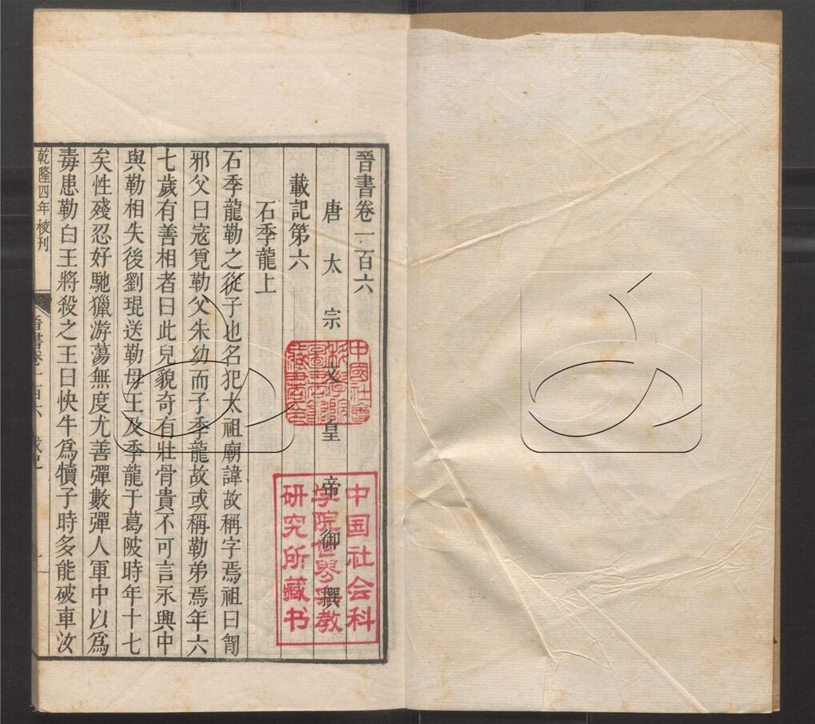 晉書卷一百六
唐太宗文皇帝御撰
載記第六
石季龍上
石季龍勒之從子也名犯太祖廟諱故稱字焉祖曰㔨
邪父曰寇覓勒父朱幼而子季龍故或稱勒弟焉年六
七歲有善相者曰此兒貌奇有壯骨貴不可言永興中
與勒相失後劉琨送勒母王及季龍于葛陂時年十七
矣性殘忍好馳獵游蕩無度尤善彈數彈人軍中以爲
毒患勒白王將殺之王曰快牛爲犢子時多能破車汝
乾隆四年校刊
晉書卷一百六 載記
一
中国社会科
学院世界宗教
研究所藏书